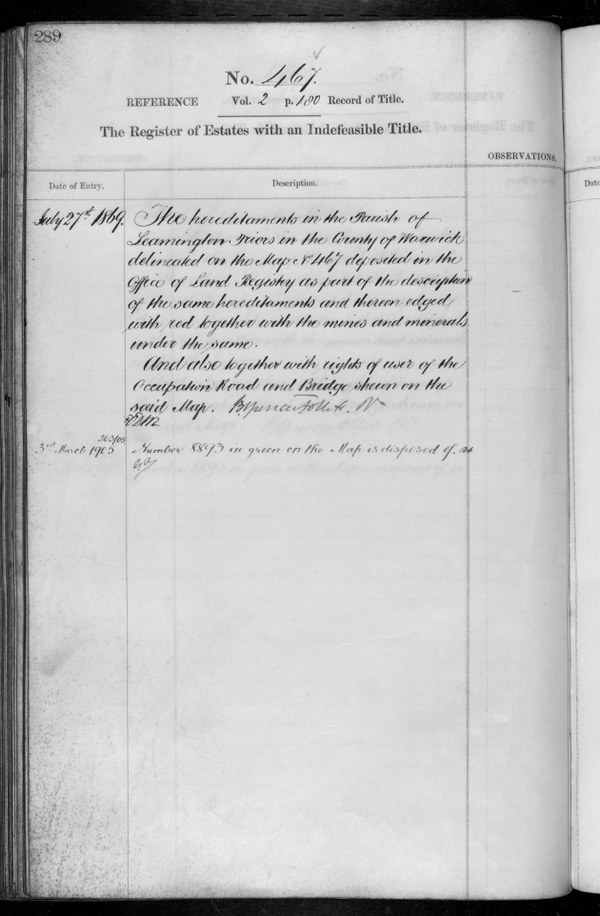 289
No. 467.
REFERENCE Vol. 2 p. 180 Record of Title.
The Register of Estates with an Indefeasible Title.
OBSERVATIONS.
Date of Entry. Description.
July 27th 1869. The hereditaments in the Parish of
Leamington Priors in the County of Warwick
delineated on the Map No 467 deposited in the
Office of Land Registry as part of the description
of the same hereditaments and thereon edged
with red together with the mines and minerals
under the same.
And also together with rights of user of the
Occupation Road and Bridge shewn on the
said Map. Brent Spencer Follett
3rd March 1903 Number 8893 in green on the Map is disposed of.